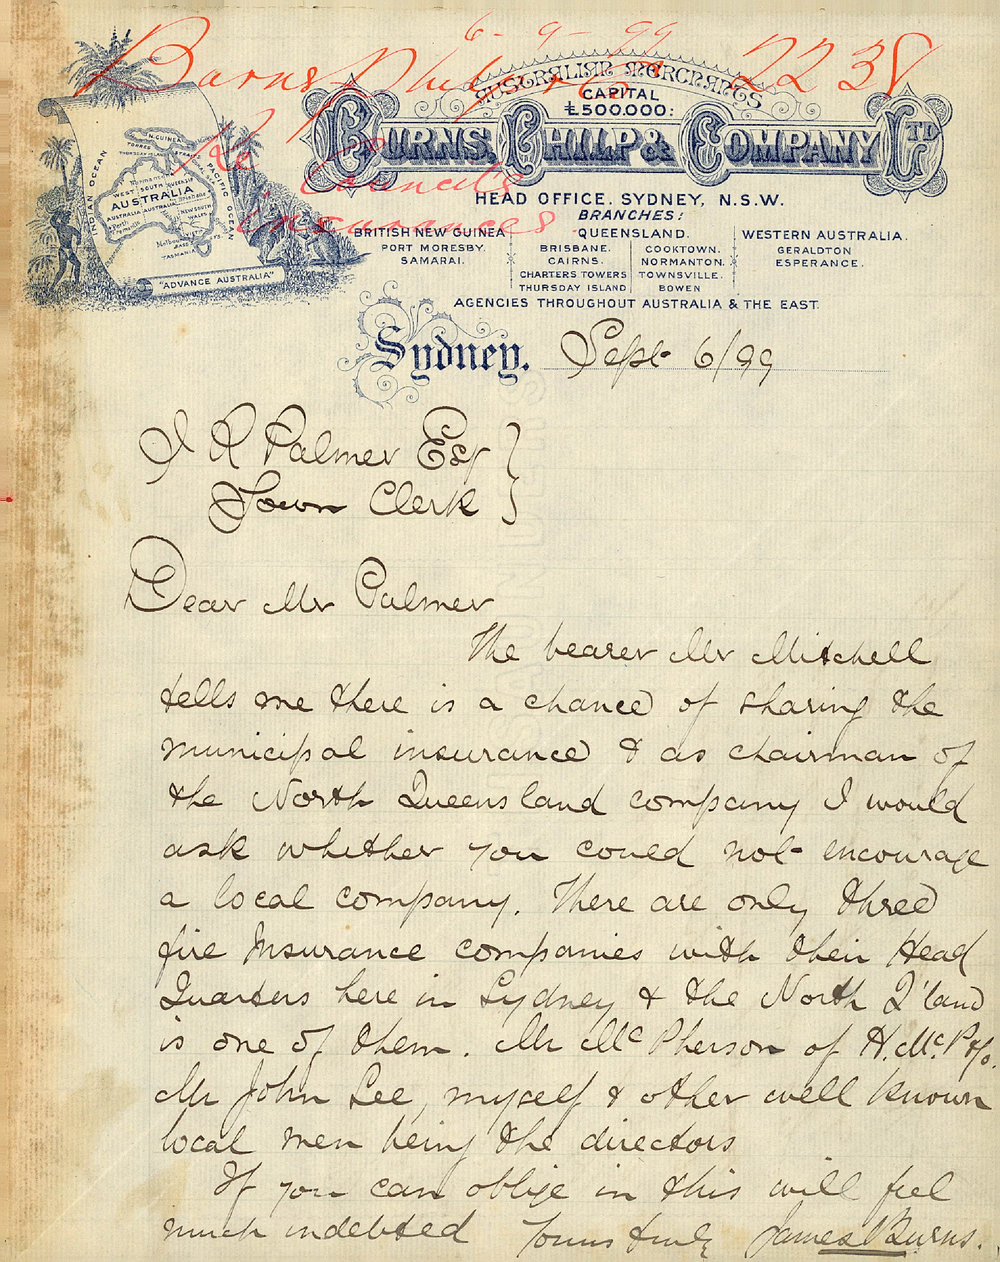 6-9-99
Burns Philp 2238
Re Council's
insurances
AUSTRALIAN MERCHANTS
CAPITAL
£500.000:
BURNS, PHILP & COMPANY LTD
HEAD OFFICE. SYDNEY, N.S.W.
BRANCHES:
BRITISH NEW GUINEA
PORT MORESBY.
SAMARAI.
QUEENSLAND.
BRISBANE.
CAIRNS.
CHARTERS TOWERS
THURSDAY ISLAND
COOKTOWN.
NORMANTON.
TOWNSVILLE.
BOWEN
WESTERN AUSTRALIA.
GERALDTON
ESPERANCE.
AGENCIES THROUGHOUT AUSTRALIA & THE EAST.
INDIAN OCEAN
PACIFIC OCEAN
N. GUINEA
WEST SOUTH
AUSTRALIA
NEW SOUTH
WALES
TASMANIA
"ADVANCE AUSTRALIA"
Sydney. Sept 6/99
J R Palmer Esq
Town Clerk
Dear Mr Palmer
The bearer Mr Mitchell
tells me there is a chance of sharing the
municipal insurance & as chairman of
the North Queensland company I would
ask whether you could not encourage
a local company. There are only three
fire Insurance companies with their Head
Quarters here in Sydney & the North Q'land
is one of them. Mr McPherson of H. McP & Co.
Mr John Lee, myself & other well known
local men being the directors
If you can oblige in this will feel
much indebted Yours truly James Burns.